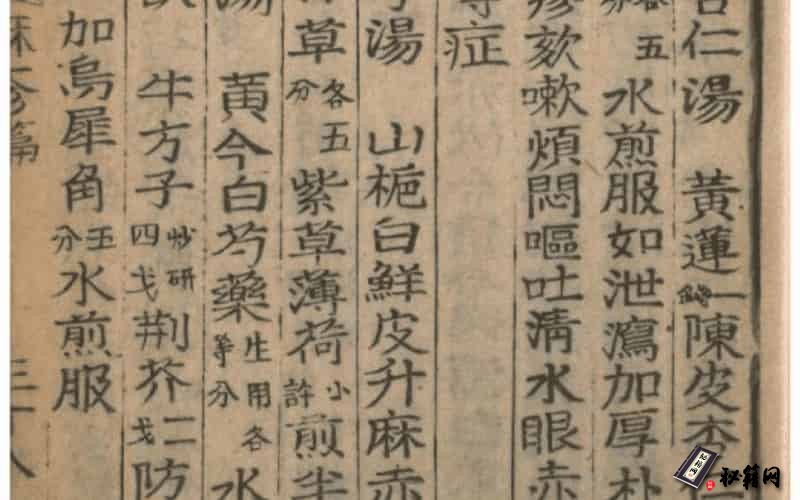 杏仁湯 黃連一錢陳皮杏
各五 水煎服如泄瀉加厚朴
疹欬嗽煩悶嘔吐淸水眼赤
症
湯 山梔白鮮皮升麻赤
草各五分紫草薄荷小許煎半
湯 黄今白芍藥生用各等分水
牛方子炒研四戈荆芥二戈防
加烏犀角五分水煎服
三十八
秘籍网